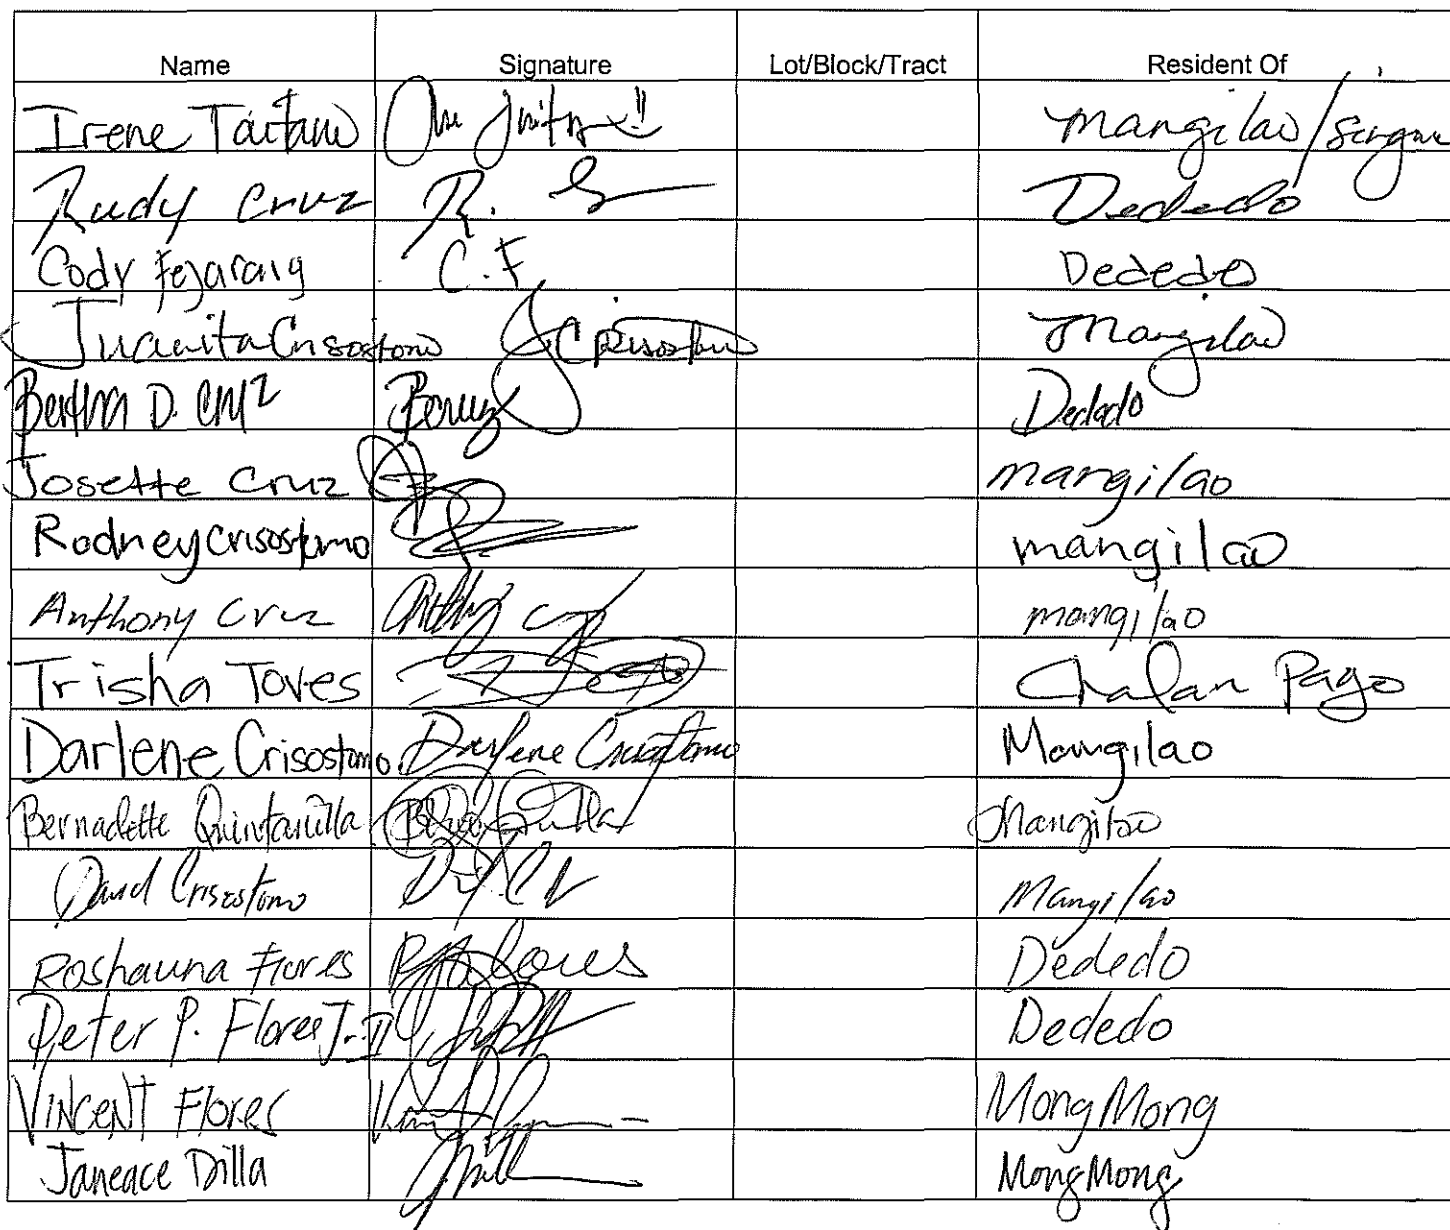 Name Signature Lot/Block/Tract Resident Of
Irene Taitano mangilao/
Rudy Cruz R. Dededo
Cody Fejarang C.F Dededo
Juanita Crisostomo J Crisostomo Mangilao
Bertha D. Cruz Bcruz Dededo
Josette Cruz mangilao
Rodney crisostomo mangilao
Anthony Cruz mangilao
Trisha Toves Chalan Pago
Darlene Crisostomo Darlene Crisostomo Mangilao
Bernadette Quintanilla Mangilao
David Crisostomo Mangilao
Roshauna Flores Flores Dededo
Peter P. Flores Jr. II Dededo
VINCENT Flores MongMong
Janeace Dilla MongMong